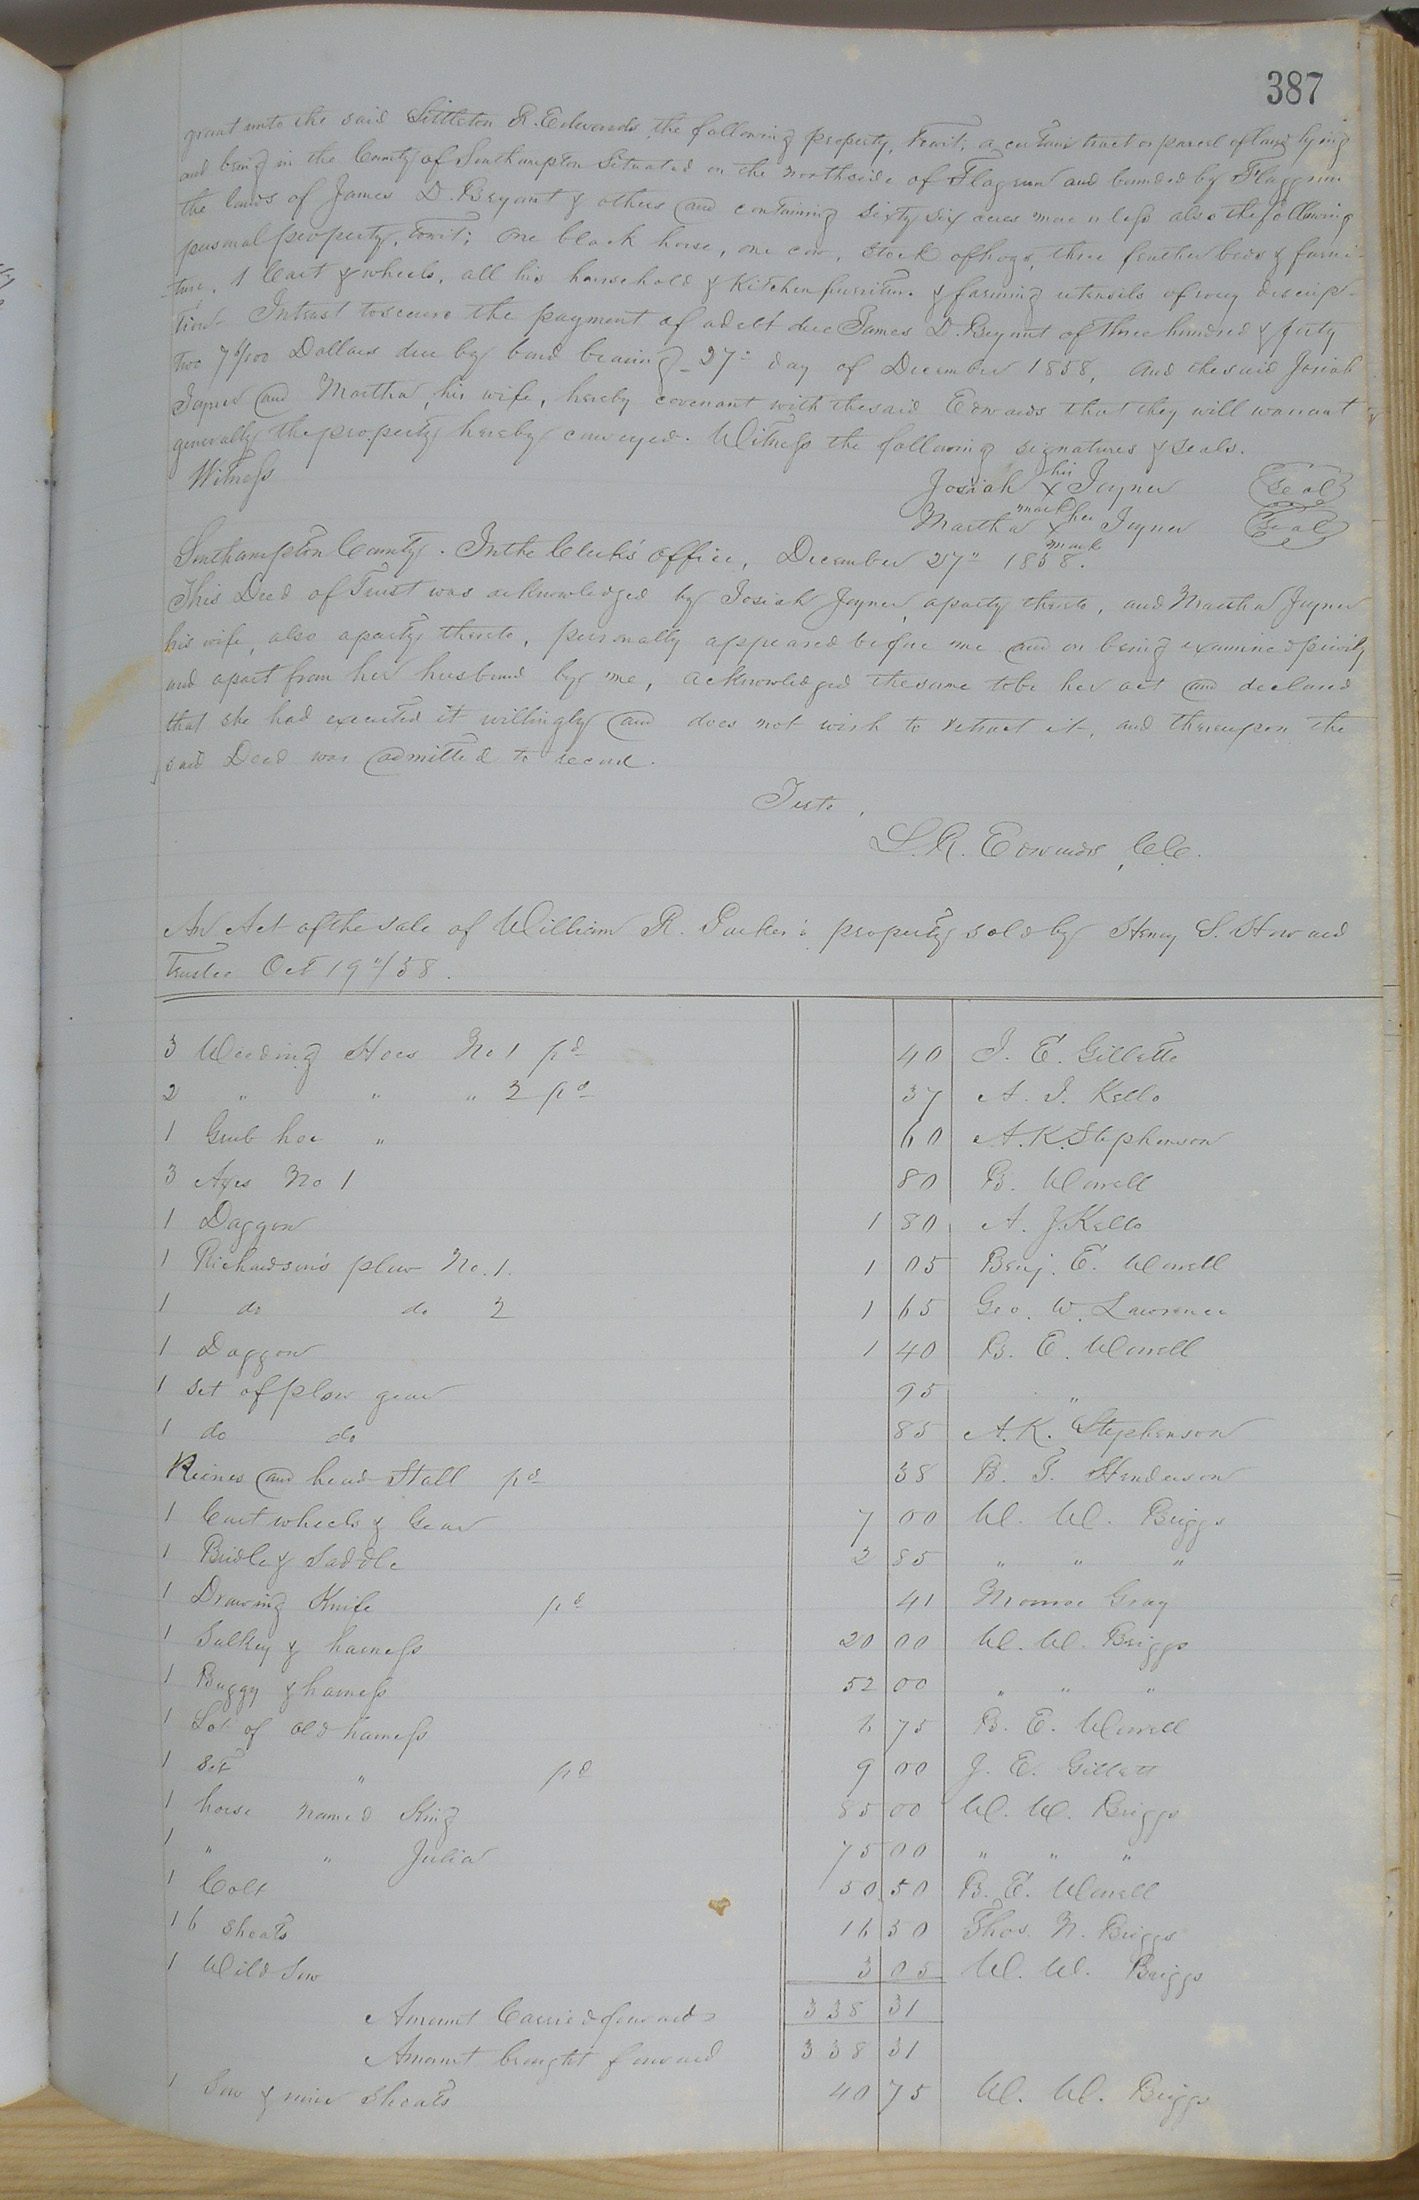 387
grant unto the said Littleton R. Edwards the following property, towit; a certain tract or parcel of land lying
and being in the County of Southampton situated on the northside of Flagrun and bounded by Flaggrun
the lands of James D. Bryant & others and containing sixty six acres more or less also the following
personal property, towit; One black horse, one cow, stock of hogs, three feather beds & furni-
-ture, 1 Cart & wheels, all his household & Kitchen furniture & farming utensils of every descrip-
tion- Intrust to secure the payment of a debt due James D. Bryant of three hundred & forty
two 76/100 Dollars due by bond bearing 27th day of December 1858, and the said Josiah
Joyner and Martha, his wife, hereby covenant with the said Edwards that they will warrant
generally the property hereby conveyed. Witness the following signatures & seals.
Witness
Josiah his X mark Joyner Seal
Martha her X mark Joyner Seal
Southampton County. In the Clerk's office, December 27" 1858.
This Deed of Trust was acknowledged by Josiah Joyner, a party thereto, and Martha Joyner
his wife, also a party thereto, personally appeared before me and on being examined privily
and apart from her husband by me, acknowledged the same to be her act and declared
that she had executed it willingly and does not wish to retract it, and thereupon the
said Deed was admitted to record.
Teste,
L. R. Edwards, C.C.
An Act of the sale of William R. Parker's property sold by Henry S. Howard
trustee Oct 19"/58.
3 Weeding Hoes No 1 pd 40 J. E. Gillette
2 " " " 2 pd 37 A. J. Kello
1 Grub hoe " 60 A. K. Stephenson
3 Axes No 1 80 B. Worrell
1 Daggon 1 80 A. J. Kello
1 Richardson's plow No. 1. 1 05 Benj. E. Worrell
1 do do 2 1 65 Geo. W. Lawrence
1 Daggon 1 40 B. E. Worrell
1 set of plow gear 95 "
1 do do 85 A. K. Stephenson
Reines and head Stall pd 38 B. T. Henderson
1 Cart wheels & Gear 7 00 W. W. Briggs
1 Bridle & Saddle 2 85 " " "
1 Drawing Knife pd 41 Monroe Gray
1 Sulkey & harness 20 00 W. W. Briggs
1 Buggy & harness 52 00 " " "
1 Lot of old harness 6 75 B. E. Worrell
1 Set " pd 9 00 J. E. Gillett
1 horse named King 85 00 W. W. Briggs
1 " " Julia 75 00 " " "
1 Colt 50 50 B. E. Worrell
16 Shoats 16 50 Thos. N. Briggs
1 Wild Sow 3 05 W. W. Briggs
Amount Carried forward 338 31
Amount brought forward 338 31
1 Sow & nine Shoats 40 75 W. W. Briggs